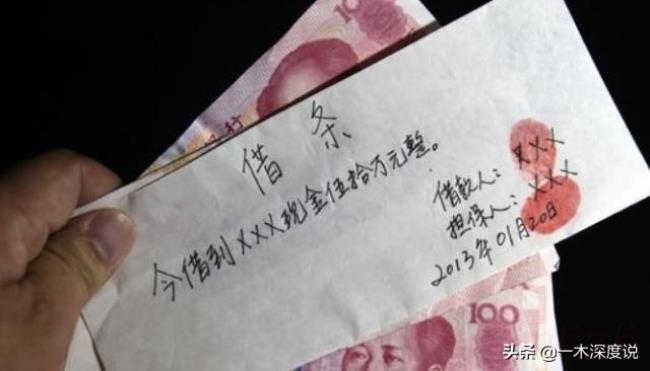 100
借条
今借到XXX现金伍拾万元整。
借款人：XXX
担保人：XXX
2013年01月20日
100
头条 @一木深度说